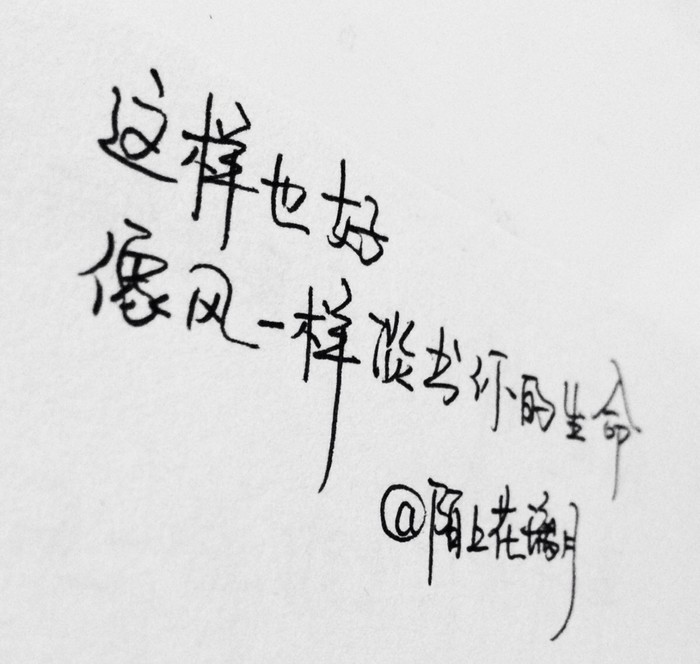 这样也好
像风一样淡出你的生命
@陌上花满月